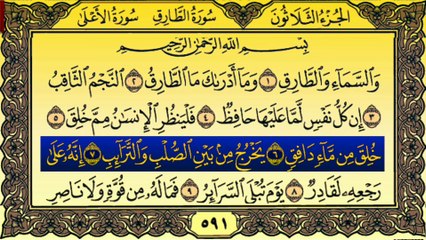 الجُزْءُ الثَّلَاثُونَ سُورَةُ الطَّارِقِ سُورَةُ الأَعْلَى
بِسْمِ اللَّهِ الرَّحْمَٰنِ الرَّحِيمِ
وَالسَّمَاءِ وَالطَّارِقِ ١ وَمَا أَدْرَىٰكَ مَا الطَّارِقُ ٢ النَّجْمُ الثَّاقِبُ
٣ إِن كُلُّ نَفْسٍ لَّمَّا عَلَيْهَا حَافِظٌ ٤ فَلْيَنظُرِ الْإِنسَٰنُ مِمَّ خُلِقَ ٥
خُلِقَ مِن مَّاءٍ دَافِقٍ ٦ يَخْرُجُ مِن بَيْنِ الصُّلْبِ وَالتَّرَائِبِ ٧ إِنَّهُ عَلَىٰ
رَجْعِهِ لَقَادِرٌ ٨ يَوْمَ تُبْلَى السَّرَائِرُ ٩ فَمَا لَهُ مِن قُوَّةٍ وَلَا نَاصِرٍ
٥٩١